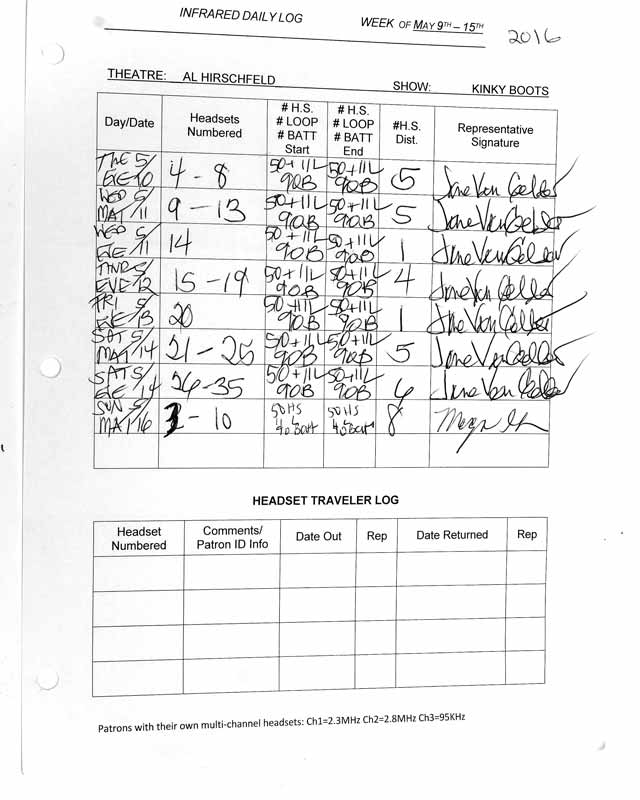 INFRARED DAILY LOG WEEK OF MAY 9TH – 15TH 2016
THEATRE: AL HIRSCHFELD SHOW: KINKY BOOTS
Day/Date
Headsets Numbered
# H.S. # LOOP # BATT Start
# H.S. # LOOP # BATT End
#H.S. Dist.
Representative Signature
EVE 10 4 - 8 50+11L 90B 50+11L 90B 5 Jane Van Gelder
WED 5/ MAT 11 9 - 13 50+11L 90B 50+11L 90B 5 Jane Van Gelder
WED 5/ EVE 11 14 50+11L 90B 50+11L 90B 1 Jane Van Gelder
THUR 5/ EVE 12 15 - 19 50+11L 90B 50+11L 90B 4 Jane Van Gelder
FRI 5/ EVE 13 20 50+11L 90B 50+11L 90B 1 Jane Van Gelder
SAT 5/ MAT 14 21 - 25 50+11L 90B 50+11L 90B 5 Jane Van Gelder
SAT 5/ EVE 14 26 - 35 50+11L 90B 50+11L 90B 6 Jane Van Gelder
SUN 5/ MAT 16 - 10 50HS 90Batt 50HS 90Batt 8
HEADSET TRAVELER LOG
Headset Numbered
Comments/ Patron ID Info
Date Out
Rep
Date Returned
Rep
Patrons with their own multi-channel headsets: Ch1=2.3MHz Ch2=2.8MHz Ch3=95KHz